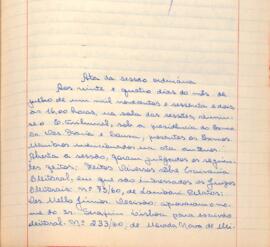 Ata da sessão ordinária
Aos vinte e quatro dias do mês de
julho de mil novecentos e sessenta e dois
às 16,00 horas, na sala das sessões, reuniu-
se o E. Tribunal, sob a presidência do Exmo.
Des. Faria e Souza, presentes os Exmos.
Membros mencionados na ata anterior.
Aberta a sessão, foram julgados os seguin-
tes feitos: Feitos Diversos sôbre Escrivania
Eleitoral, em que são interessados os Juízes
Eleitorais: Nº 73/60, de Lambari. Relator:
Des. Mello Júnior. Decisão: aprovaram o no-
me do sr. Serafim para escrivão
eleitoral. Nº 233/60, de Nova de